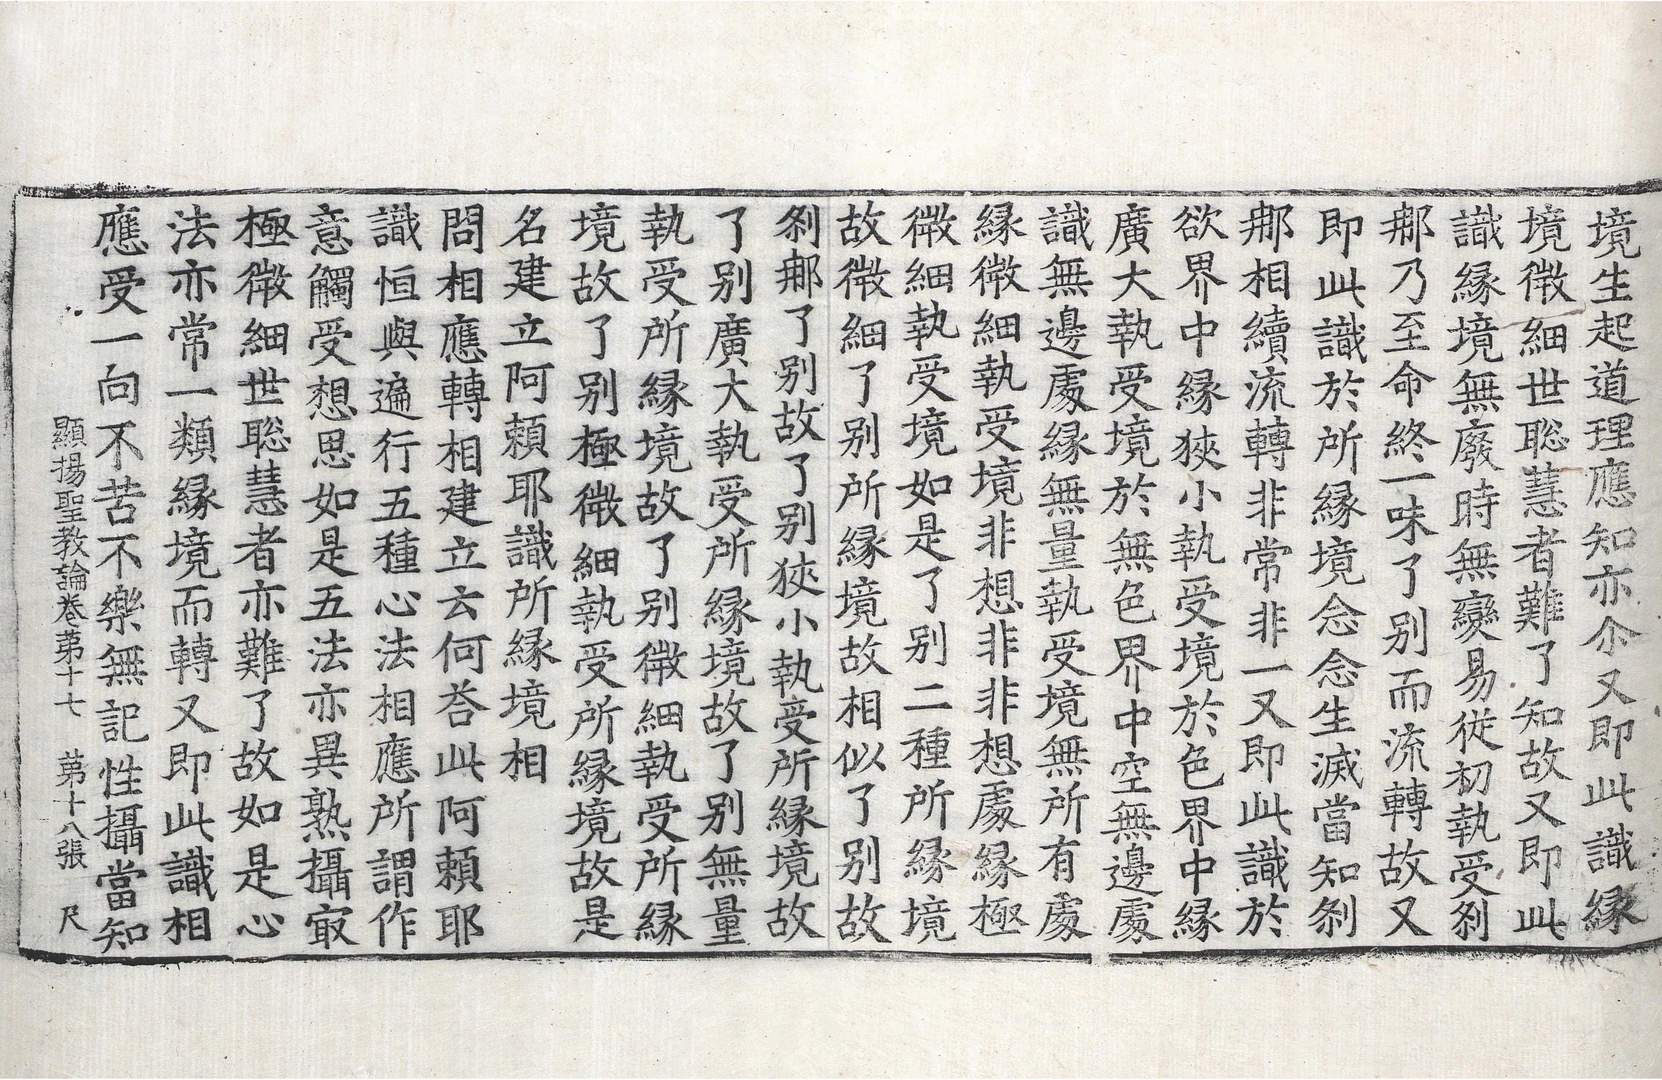 境生起道理應知亦尒又即此識縁
境微細世聡慧者難了知故又即此
識縁境無廢時無變易從初執受刹
那乃至命終一味了别而流轉故又
即此識於所縁境念念生滅當知刹
那相續流轉非常非一又即此識於
欲界中縁狹小執受境於色界中縁
廣大執受境於無色界中空無邊䖏
識無邊䖏縁無量執受境無所有䖏
縁微細執受境非想非非想䖏縁極
微細執受境如是了别二種所縁境
故微細了别所縁境故相似了别故
刹那了别故了别狹小執受所縁境故
了别廣大執受所縁境故了别無量
執受所縁境故了别微細執受所縁
境故了别極微細執受所縁境故是
名建立阿賴耶識所縁境相
問相應轉相建立云何荅此阿賴耶
識恒與遍行五種心法相應所謂作
意觸受想思如是五法亦異熟攝㝡
極微細世聡慧者亦難了故如是心
法亦常一類縁境而轉又即此識相
應受一向不苦不樂無記性攝當知
顯揚聖教論卷苐十七　苐十八張　尺